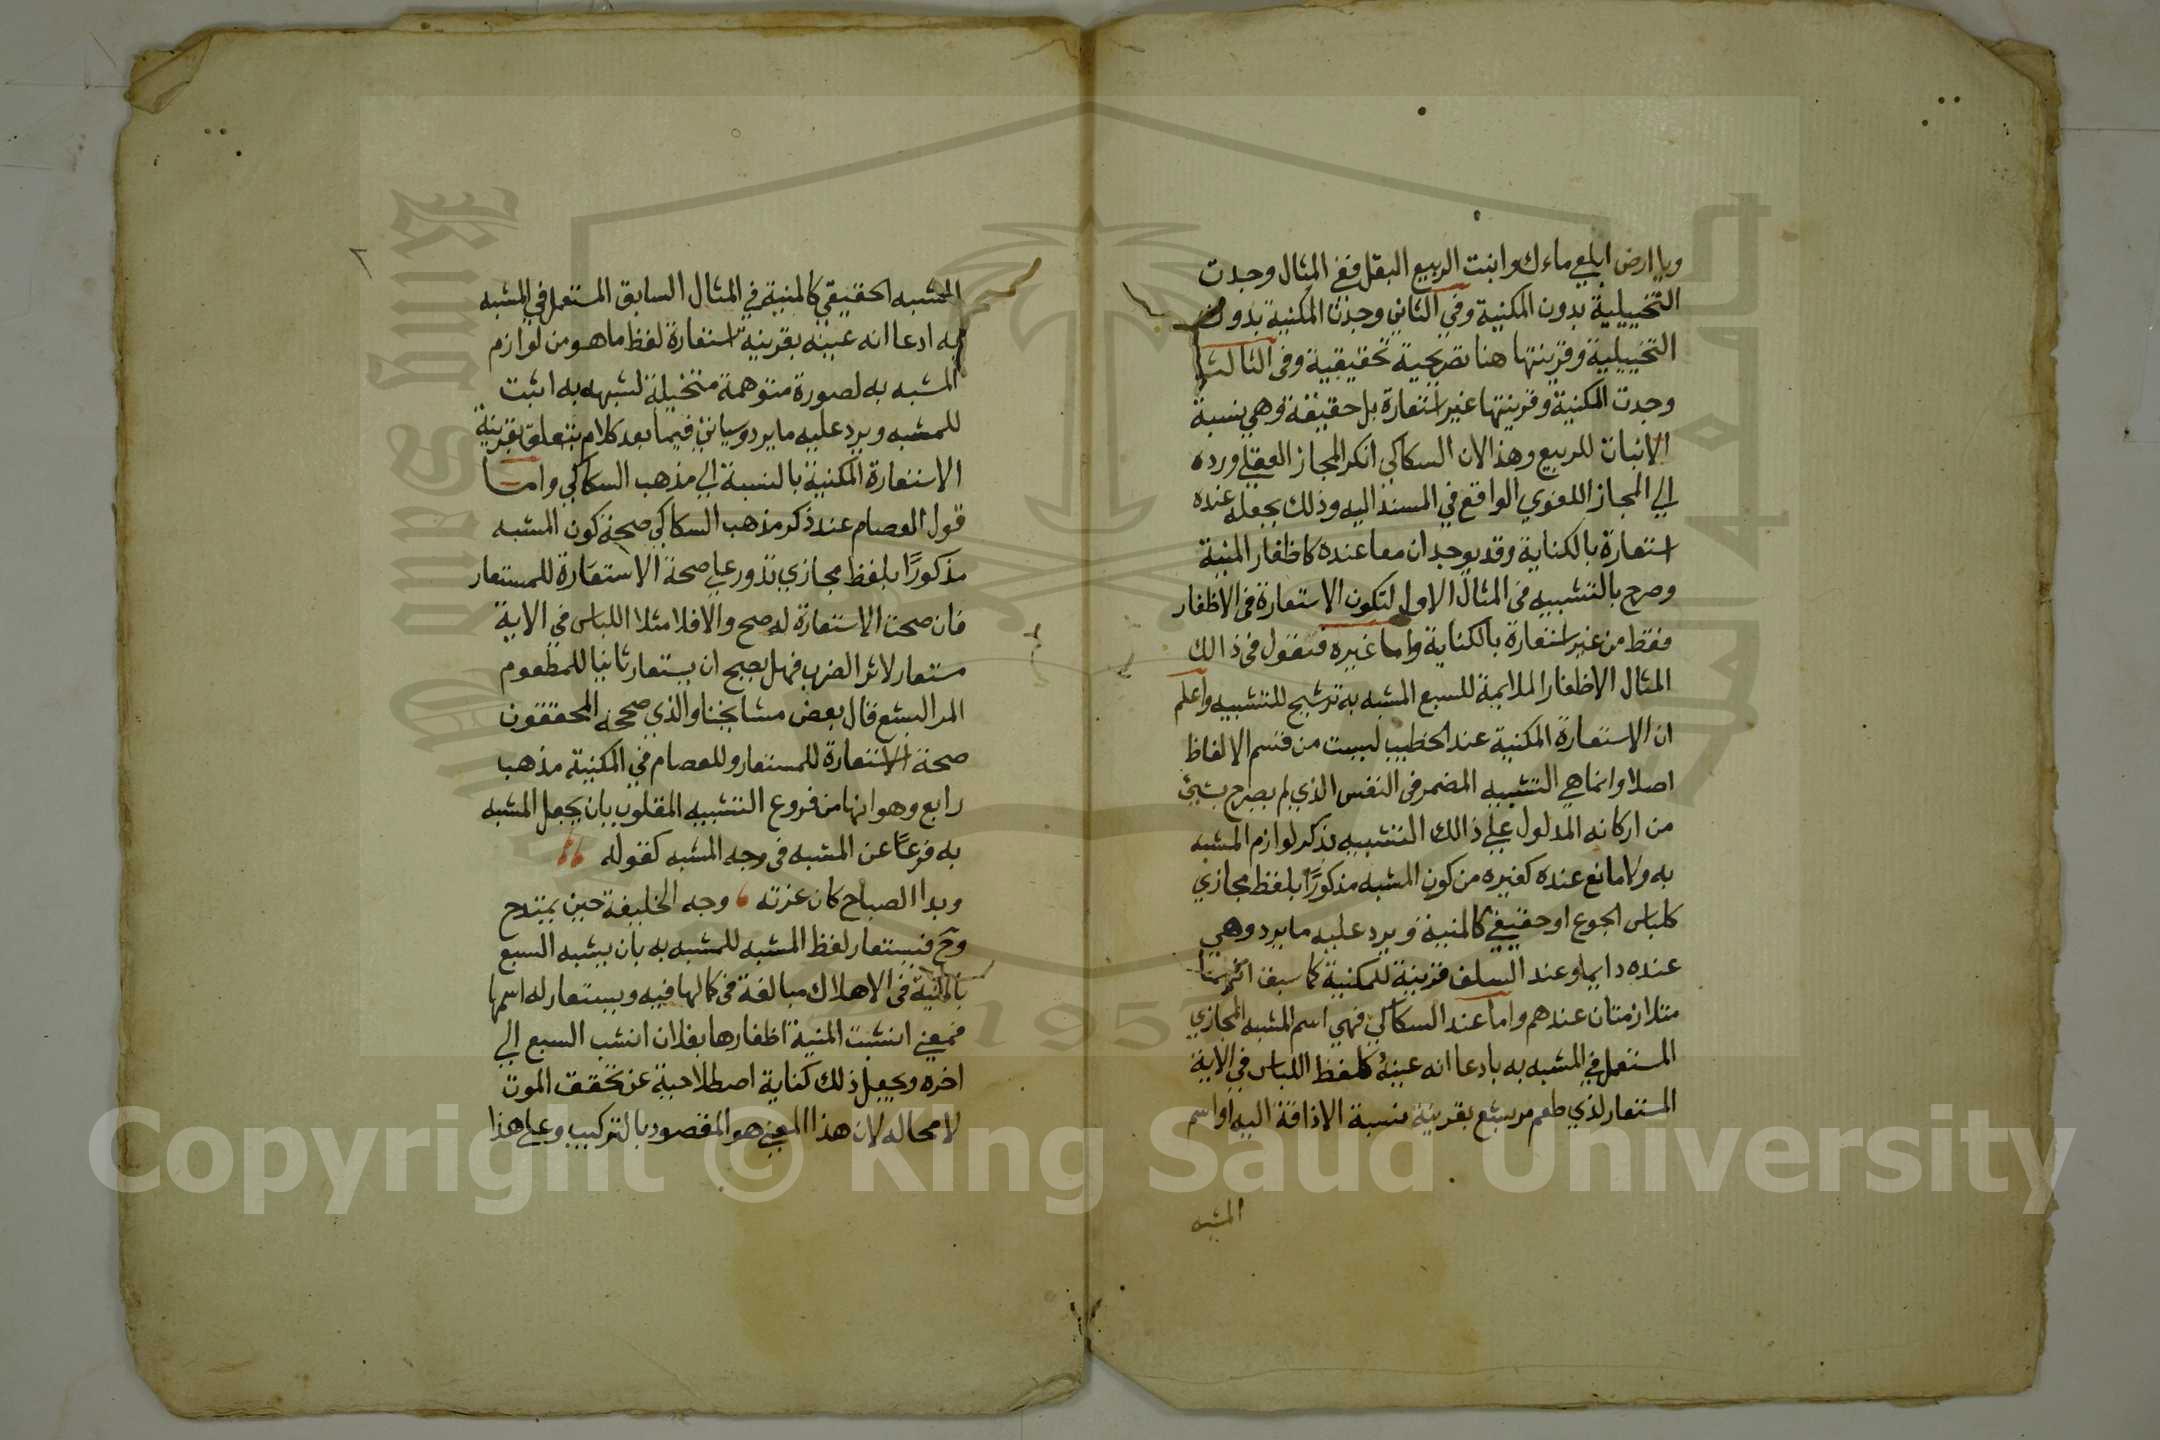 ويا ارض ابلعي ماءك وانبت الربيع البقل ففي المثال وجدت
التخييلية بدون المكنية وفي الثاني وجدت المكنية بدون
التخييلية وقرينتها هنا تصريحية تحقيقية وفي الثالث
وجدت المكنية وقرينتها غير استعارة بل حقيقة وهي نسبة
الانبات للربيع وهذا لان السكاكي انكر المجاز العقلي ورده
الي المجاز اللغوي الواقع في المسند اليه وذلك بجعله عنده
استعارة بالكناية وقد يوجدان معا عنده كاظفار المنية
وصرح بالتشبيه في المثال الاول لتكون الاستعارة في الاظفار
فقط من غير استعارة بالكناية واما غيره فتقول في ذالك
المثال الاظفار الملايمة للسبع المشبه به ترشيح للتشبيه واعلم
ان الاستعارة المكنية عند الخطيب ليست من قسم الالفاظ
اصلا وانما هي التشبيه المضمر في النفس الذي لم يصرح بشيئ
من اركانه المدلول علي ذالك التشبيه بذكر لوازم المشبه
به ولا مانع عنده كغيره من كون المشبه مذكورًا بلفظ مجازي
كلباس الجوع او حقيقي كالمنية ويرد عليه ما يرد وهي
عنده دايما وعند السلف قرينة للمكنية كما سبق
متلازمتان عندهم واما عند السكاكي فهي اسم المشبه المجازي
المستعمل في المشبه به بادعا انه عينه كلفظ اللباس في الاية
المستعار لذي طعم مر بشع بقرينة نسبة الاذاقة اليه او اسم
المشبه
٢
المشبه الحقيقي كالمنية في المثال السابق المستعمل في المشبه
به ادعا انه عينه بقرينة استعارة لفظ ما هو من لوازم
المشبه به لصورة متوهمة متخيلة لشبهه به اثبت
للمشبه ويرد عليه ما يرد وسياتي فيما بعد كلام يتعلق بقرينة
الاستعارة المكنية بالنسبة الي مذهب السكاكي واما
قول العصام عند ذكر مذهب السكاكي صحة كون المشبه
مذكورًا بلفظ مجازي تدور علي صحة الاستعارة للمستعار
فان صحت الاستعارة له صح والا فلا مثلا اللباس في الاية
مستعار لاثر الضرب فهل يصح ان يستعار ثانيا للمطعوم
المر البشع قال بعض مشايخنا والذي صححه المحققون
صحة الاستعارة للمستعار وللعصام في المكنية مذهب
رابع وهو انها من فروع التشبيه المقلوب بان يجعل المشبه
به فرعًا عن المشبه في وجه المشبه كقوله
وبدا الصباح كان غرته وجه الخليفة حين يمتدح
وح فيستعار لفظ المشبه للمشبه به بان يشبه السبع
بالمنية في الاهلاك مبالغة في كمالها فيه ويستعار له اسمها
فمعني انشبت المنية اظفارها بفلان انشب السبع الي
اخره ويجعل ذلك كناية اصطلاحية عن تحقق الموت
لا محاله لان هذا المعني هو المقصود بالتركيب وعلي هذا
Copyright © King Saud University
1957